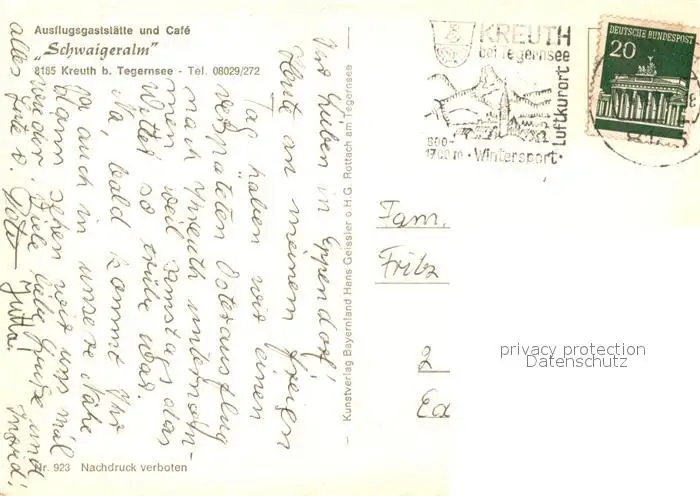 Ausflugsgaststätte und Café
„Schwaigeralm"
8185 Kreuth b. Tegernsee - Tel. 08029/272
Ihr Lieben in Eppendorf!
Heute an meinem freien
Tag haben wir einen
verspäteten Osterausflug
nach Kreuth unternom-
men weil samstags das
Wetter so trübe war.
Na, bald kommt Ihr
ja auch in unsere Nähe
dann sehen wir uns mal
wieder. Viele liebe Grüße und
alles Gute v.
Jutta!
Ingrid!
Nr. 923 Nachdruck verboten
— Kunstverlag Bayernland Hans Geissler o.H.G. Rottach am Tegernsee —
KREUTH
bei Tegernsee
Luftkurort
800-
1700 m · Wintersport ·
DEUTSCHE BUNDESPOST
20
Fam.
Fritz
2
privacy protection
Datenschutz